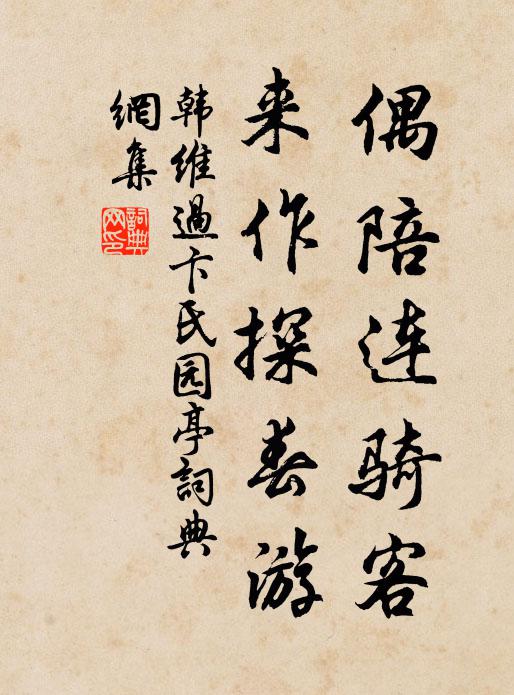 偶陪连骑客
来作探春游
韩维过卞氏园亭词典
網集
詞典网印